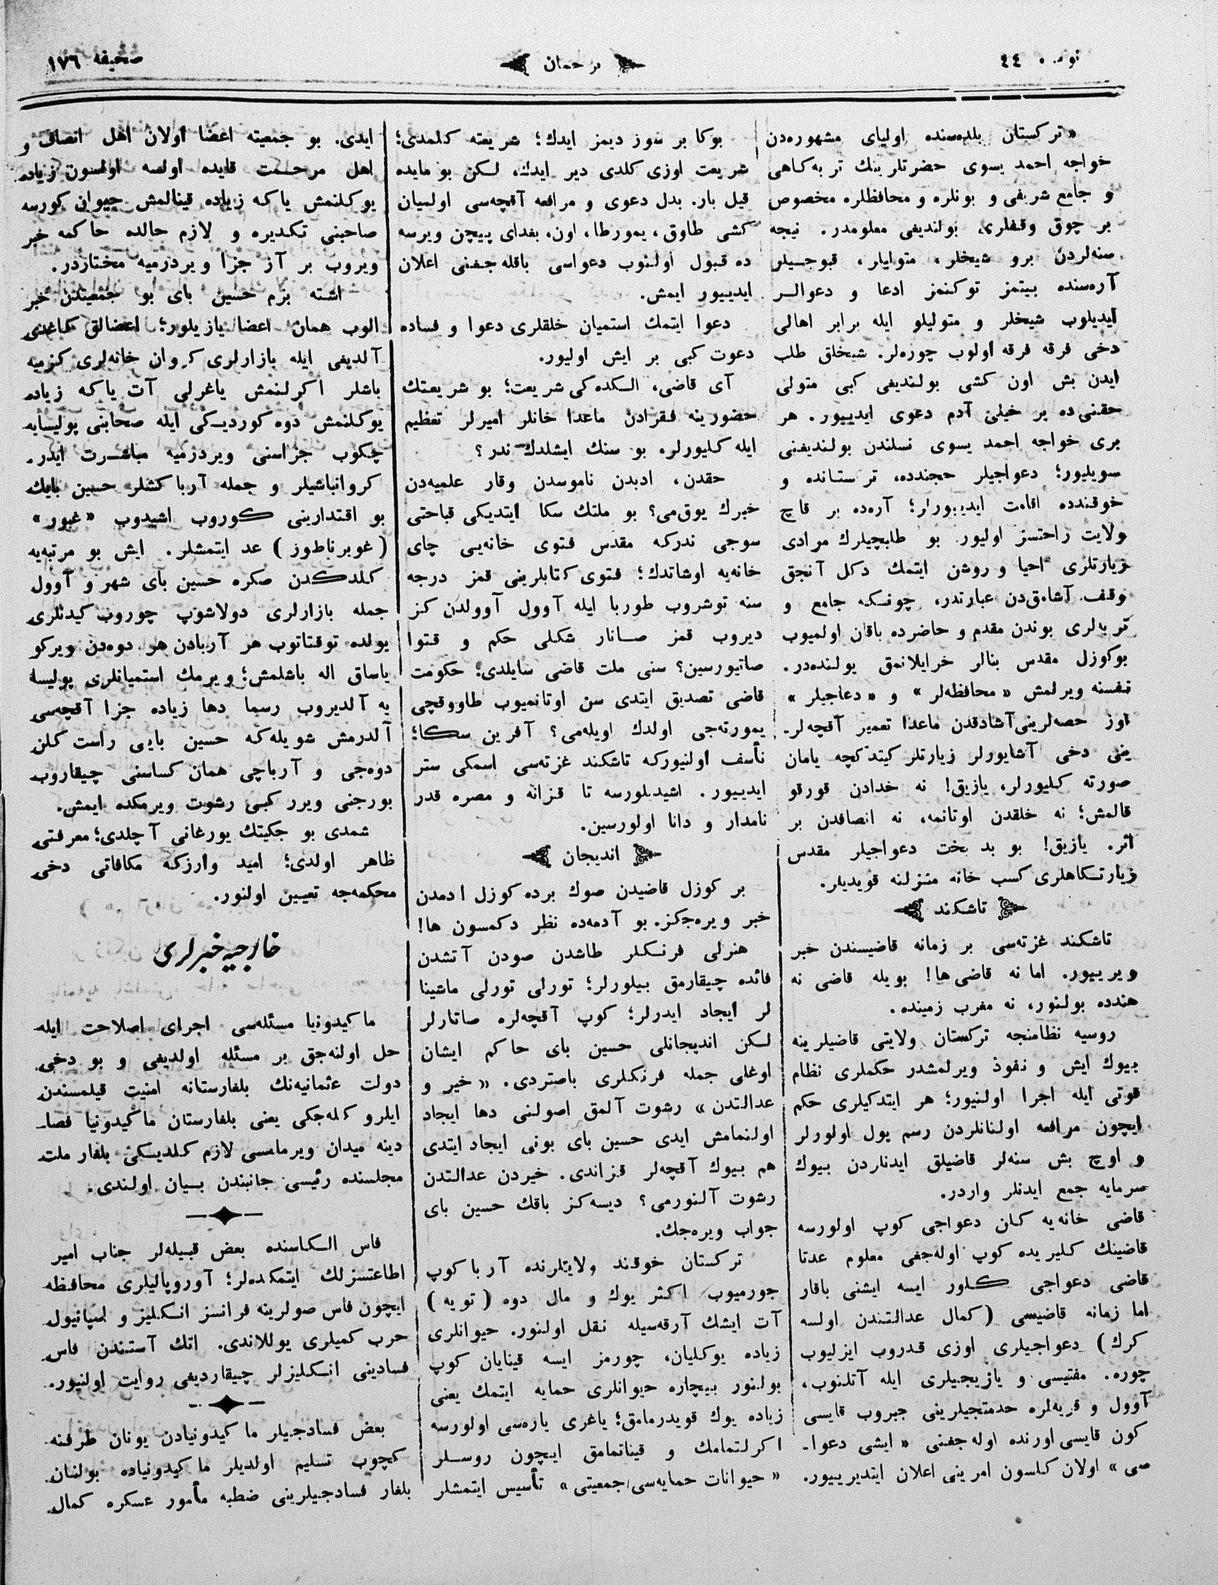 نومره ٤٤
ترجمان
صحيفه ١٧٦
« تركستان بلده‌سنده اوليای مشهوره‌دن
خواجه احمد يسوی حضرتلرينك تربه‌كاهی
و جامع شريفی و بونلره و محافظلره مخصوص
بر چوق وقفلری بولنديغی معلومدر. نيچه
سنه‌لردن برو شيخلر، متوليلر، قبوجيلر
آره‌سنده بيتمز توكنمز ادعا و دعوالر
ايديلوب شيخلر و متوليلو ايله برابر اهالی
دخی فرقه فرقه اولوب چوره‌لر. شيخلق طلب
ايدن بش اون كشی بولنديغی كبی متولی
حقنی‌ده بر خيلی آدم دعوی ايدييور. هر
بری خواجه احمد يسوی نسلندن بولنديغنی
سويليور؛ دعواجيلر خجنده، ترستانده و
خوقندده اقامت ايدييورلر؛ آره‌ده بر قاچ
ولايت راحتسز اوليور. بو طلبچيلرك مرادی
زيارتلری احيا و روشن ايتمك دكل آنجق
وقف آشامق‌دن عبارتدر، چونكه جامع و
تربه‌لری بوندن مقدم و حاضرده باقان اولميوب
بوكوزل مقدس بنالر خرابلانمق يولنده‌در.
نفسنه ويرلمش « محافظه‌لر » و « دعاجيلر »
اوز حصه‌لرينی آشادقدن ماعدا تعمير آقچه‌لر-
ينی دخی آشايورلر زيارتلر كيتدكچه يامان
صورته كليورلر، يازيق! نه خدادن قورقو
قالمش؛ نه خلقدن اوتانمه، نه انصافدن بر
اثر. يازيق! بو بد بخت دعواجيلر مقدس
زيارتكاهلری كسب خانه منزلنه قويديلر.
تاشكند
تاشكند غزته‌سی بر زمانه قاضيسندن خبر
ويرييور. اما نه قاضی ها! بويله قاضی نه
هندده بولنور، نه مغرب زمينده.
روسيه نظامنجه تركستان ولايتی قاضيلرينه
بيوك ايش و نفوذ ويرلمشدر حكملری نظام
قوتی ايله اجرا اولنيور؛ هر ايتدكيلری حكم
ايچون مرافعه اولنانلردن رسم يول اولورلر
و اوچ بش سنه‌لر قاضيلق ايدنلردن بيوك
سرمايه جمع ايدنلر واردر.
قاضی خانه‌يه كلن دعواجی كوپ اولورسه
قاضينك كليری‌ده كوپ اوله‌جغی معلوم عدتا
قاضی دعواجی كلور ايسه ايشنی باقار
اما زمانه قاضيسی ( كمال عدالتندن اولسه
كرك ) دعواجيلری اوزی قدروب ايزليوب
چوره. مفتيسی و يازيجيلری ايله آتلنوب،
آوول و قريه‌لره خدمتجيلرينی جبروب قايسی
كون قايسی اورنده اوله‌جغنی « ايشی دعوا-
سی » اولان كلسون امرينی اعلان ايتديرييور.
بوكا بر سوز ديمز ايدك؛ شريعته كلمدی؛
شريعت اوزی كلدی دير ايدك، لكن بو مايده
قيل بار. بدل دعوی و مرافعه آقچه‌سی اولميان
كشی طاوق، يمورطا، اون، بغدای پيچن ويرسه
ده قبول اولنوب دعواسی باقله‌جغنی اعلان
ايدييور ايمش.
دعوا ايتمك استميان خلقلری دعوا و فساده
دعوت كبی بر ايش اوليور.
آی قاضی، الكده‌كی شريعت؛ بو شريعتك
حضورينه فقرادن ماعدا خانلر اميرلر تعظيم
ايله كليورلر. بو سنك ايشلدك ندر؟
حقدن، ادبدن ناموسدن وقار علميه‌دن
خبرك يوق‌می؟ بو ملتك سكا ايتديكی قباحتی
سوجی ندركه مقدس فتوی خانه‌يی چای
خانه‌يه اوشاتدك؛ فتوی كتابلرينی قمز درجه
سنه توشروب طوربا ايله آوول آوولدن كز
ديروب قمز صاتار شكلی حكم و فتوا
صاتيورسين؟ سنی ملت قاضی سايلدی؛ حكومت
قاضی تصديق ايتدی سن اوتانميوب طاووقچی
يمورته‌جی اولدك اويله‌می؟ آفرين سكا؛
تأسف اولنيوركه تاشكند غزته‌سی اسمكی ستر
ايدييور. اشيديلورسه تا قزانه و مصره قدر
نامدار و دانا اولورسين.
انديجان
بر كوزل قاضيدن صوك برده كوزل ادمدن
خبر ويره‌جكز. بو آدمه‌ده نظر دكمسون ها!
هنرلی فرنكلر طاشدن صودن آتشدن
فائده چيقارمق بيلورلر؛ تورلی تورلی ماشينا
لر ايجاد ايدرلر؛ كوپ آقچه‌لره صاتارلر
لكن انديجانلی حسين بای حاكم ايشان
اوغلی جمله فرنكلری باصتردی. « خير و
عدالتدن » رشوت آلمق اصولنی دها ايجاد
اولنمامش ايدی حسين بای بونی ايجاد ايتدی
هم بيوك آقچه‌لر قزاندی. خيردن عدالتدن
رشوت آلنورمی؟ ديسه‌كز باقك حسين بای
جواب ويره‌جك.
تركستان خوقند ولايتلرنده آربا كوپ
جورميوب اكثر يوك و مال دوه ( تويه )
آت ايشك آرقه‌سيله نقل اولنور. حيوانلری
زياده يوكليان، چورمز ايسه قينايان كوپ
بولنور بيچاره حيوانلری حمايه ايتمك يعنی
زياده يوك قويدرمامق؛ ياغری ياره‌سی اولورسه
اكرلتمامك و قيناتمامق ايچون روسلر
« حيوانات حمايه‌سی جمعيتی » تأسيس ايتمشلر
ايدی. بو جمعيته اعضا اولان اهل انصاف و
اهل مرحمت قايده اولسه اولسون زياده
يوكلنمش ياكه زياده قينالمش حيوان كورسه
صاحبنی تكديره و لازم حالده حاكمه خبر
ويروب بر آز جزا ويردرميه مختاردر.
اشته بزم حسين بای بو جمعيتدن خبر
الوب همان اعضا يازيلور؛ اعضالق كاغدی
آلديغی ايله بازارلری كروان خانه‌لری كزميه
باشلر اكرلنمش ياغرلی آت ياكه زياده
يوكلنمش دوه كورديكی ايله صحابنی پوليسايه
چكوب جزاسنی ويردرميه مباشرت ايدر.
كروانباشيلر و جمله آرباكشلر حسين بايك
بو اقتدارينی كوروب اشيدوب « غبور »
( غوبرناطور ) عد ايتمشلر. ايش بو مرتبه‌يه
كلدكدن صكره حسين بای شهر و آوول
جمله بازارلری دولاشوب چوروب كيدنلری
يولده توقتاتوب هر آربادن هر دوه‌دن ويركو
ياساق اله باشلمش؛ ويرمك استميانلری پوليسا
يه آلديروب رسما دها زياده جزا آقچه‌سی
آلدرمش شويله‌كه حسين بايی راست كلن
دوه‌جی و آرباچی همان كساسنی چيقاروب
بورجنی ويرر كبی رشوت ويرمكده ايمش.
شمدی بو جكيتك يورغانی آچلدی؛ معرفتی
ظاهر اولدی؛ اميد واركه مكافاتی دخی
محكمه‌جه تعيين اولنور.
خارجيه خبرلری
ماكيدونيا مسئله‌سی اجرای اصلاحت ايله
حل اولنه‌جق بر مسئله اولديغی و بو دخی
دولت عثمانيه‌نك بلغارستانه امنيت قيلمسندن
ايلرو كله‌جكی يعنی بلغارستان ماكيدونيا فصا-
دينه ميدان ويرمامسی لازم كلديكی بلغار ملت
مجلسنده رئيسی جانبندن بيان اولندی.
فاس الكاسنده بعض قبيله‌لر جناب امير
اطاعتسزلك ايتمكده‌لر؛ آوروپاليلری محافظه
ايچون فاس صولرينه فرانسز انكليز و اسپانيول
حرب كميلری يوللاندی. اتك آستندن فاس
فسادينی انكليزلر چيقارديغی روايت اولنيور.
بعض فسادجيلر ماكيدونيادن يونان طرفنه
كچوب تسليم اولديلر ماكيدونياده بولنان
بلغار فسادجيلرينی ضطبه مأمور عسكره كمال